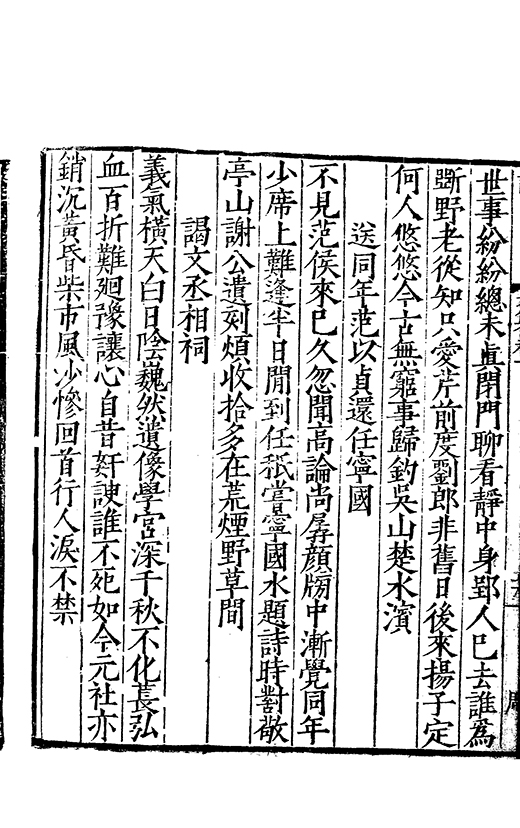 世事紛紛總未眞閉門聊看靜中身郢人已去誰爲
斲野老從知只愛芹前度劉郎非舊日後來揚子定
何人悠悠今古無窮事歸釣吳山楚水濱
送同年范以貞還任寧國
不見范侯來已久忽聞高論尚孱顔牓中漸覺同年
少席上難逢半日閒到任秪嘗寧國水題詩時對敬
亭山謝公遺刻煩收拾多在荒煙野草間
謁文丞相祠
義氣橫天白日陰巍然遺像學宮深千秋不化萇弘
血百折難廻豫讓心自昔奸諛誰不死如今元社亦
銷沉黃昏柴市風沙慘回首行人淚不禁